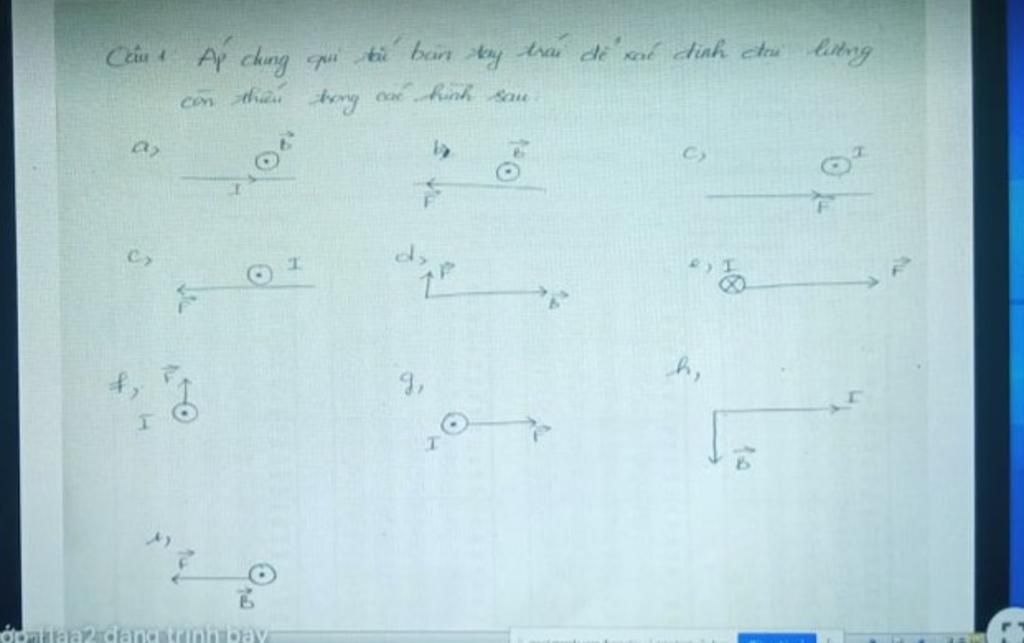 Câu 1 Áp dụng qui tắc bàn tay trái để xác định đại lượng
còn thiếu trong các hình sau.
a, B I
b, B F
c, I F
c, I F
d, F B
e, I F
f, F I
g, I F
h, I B
i, F B
đang trình bày